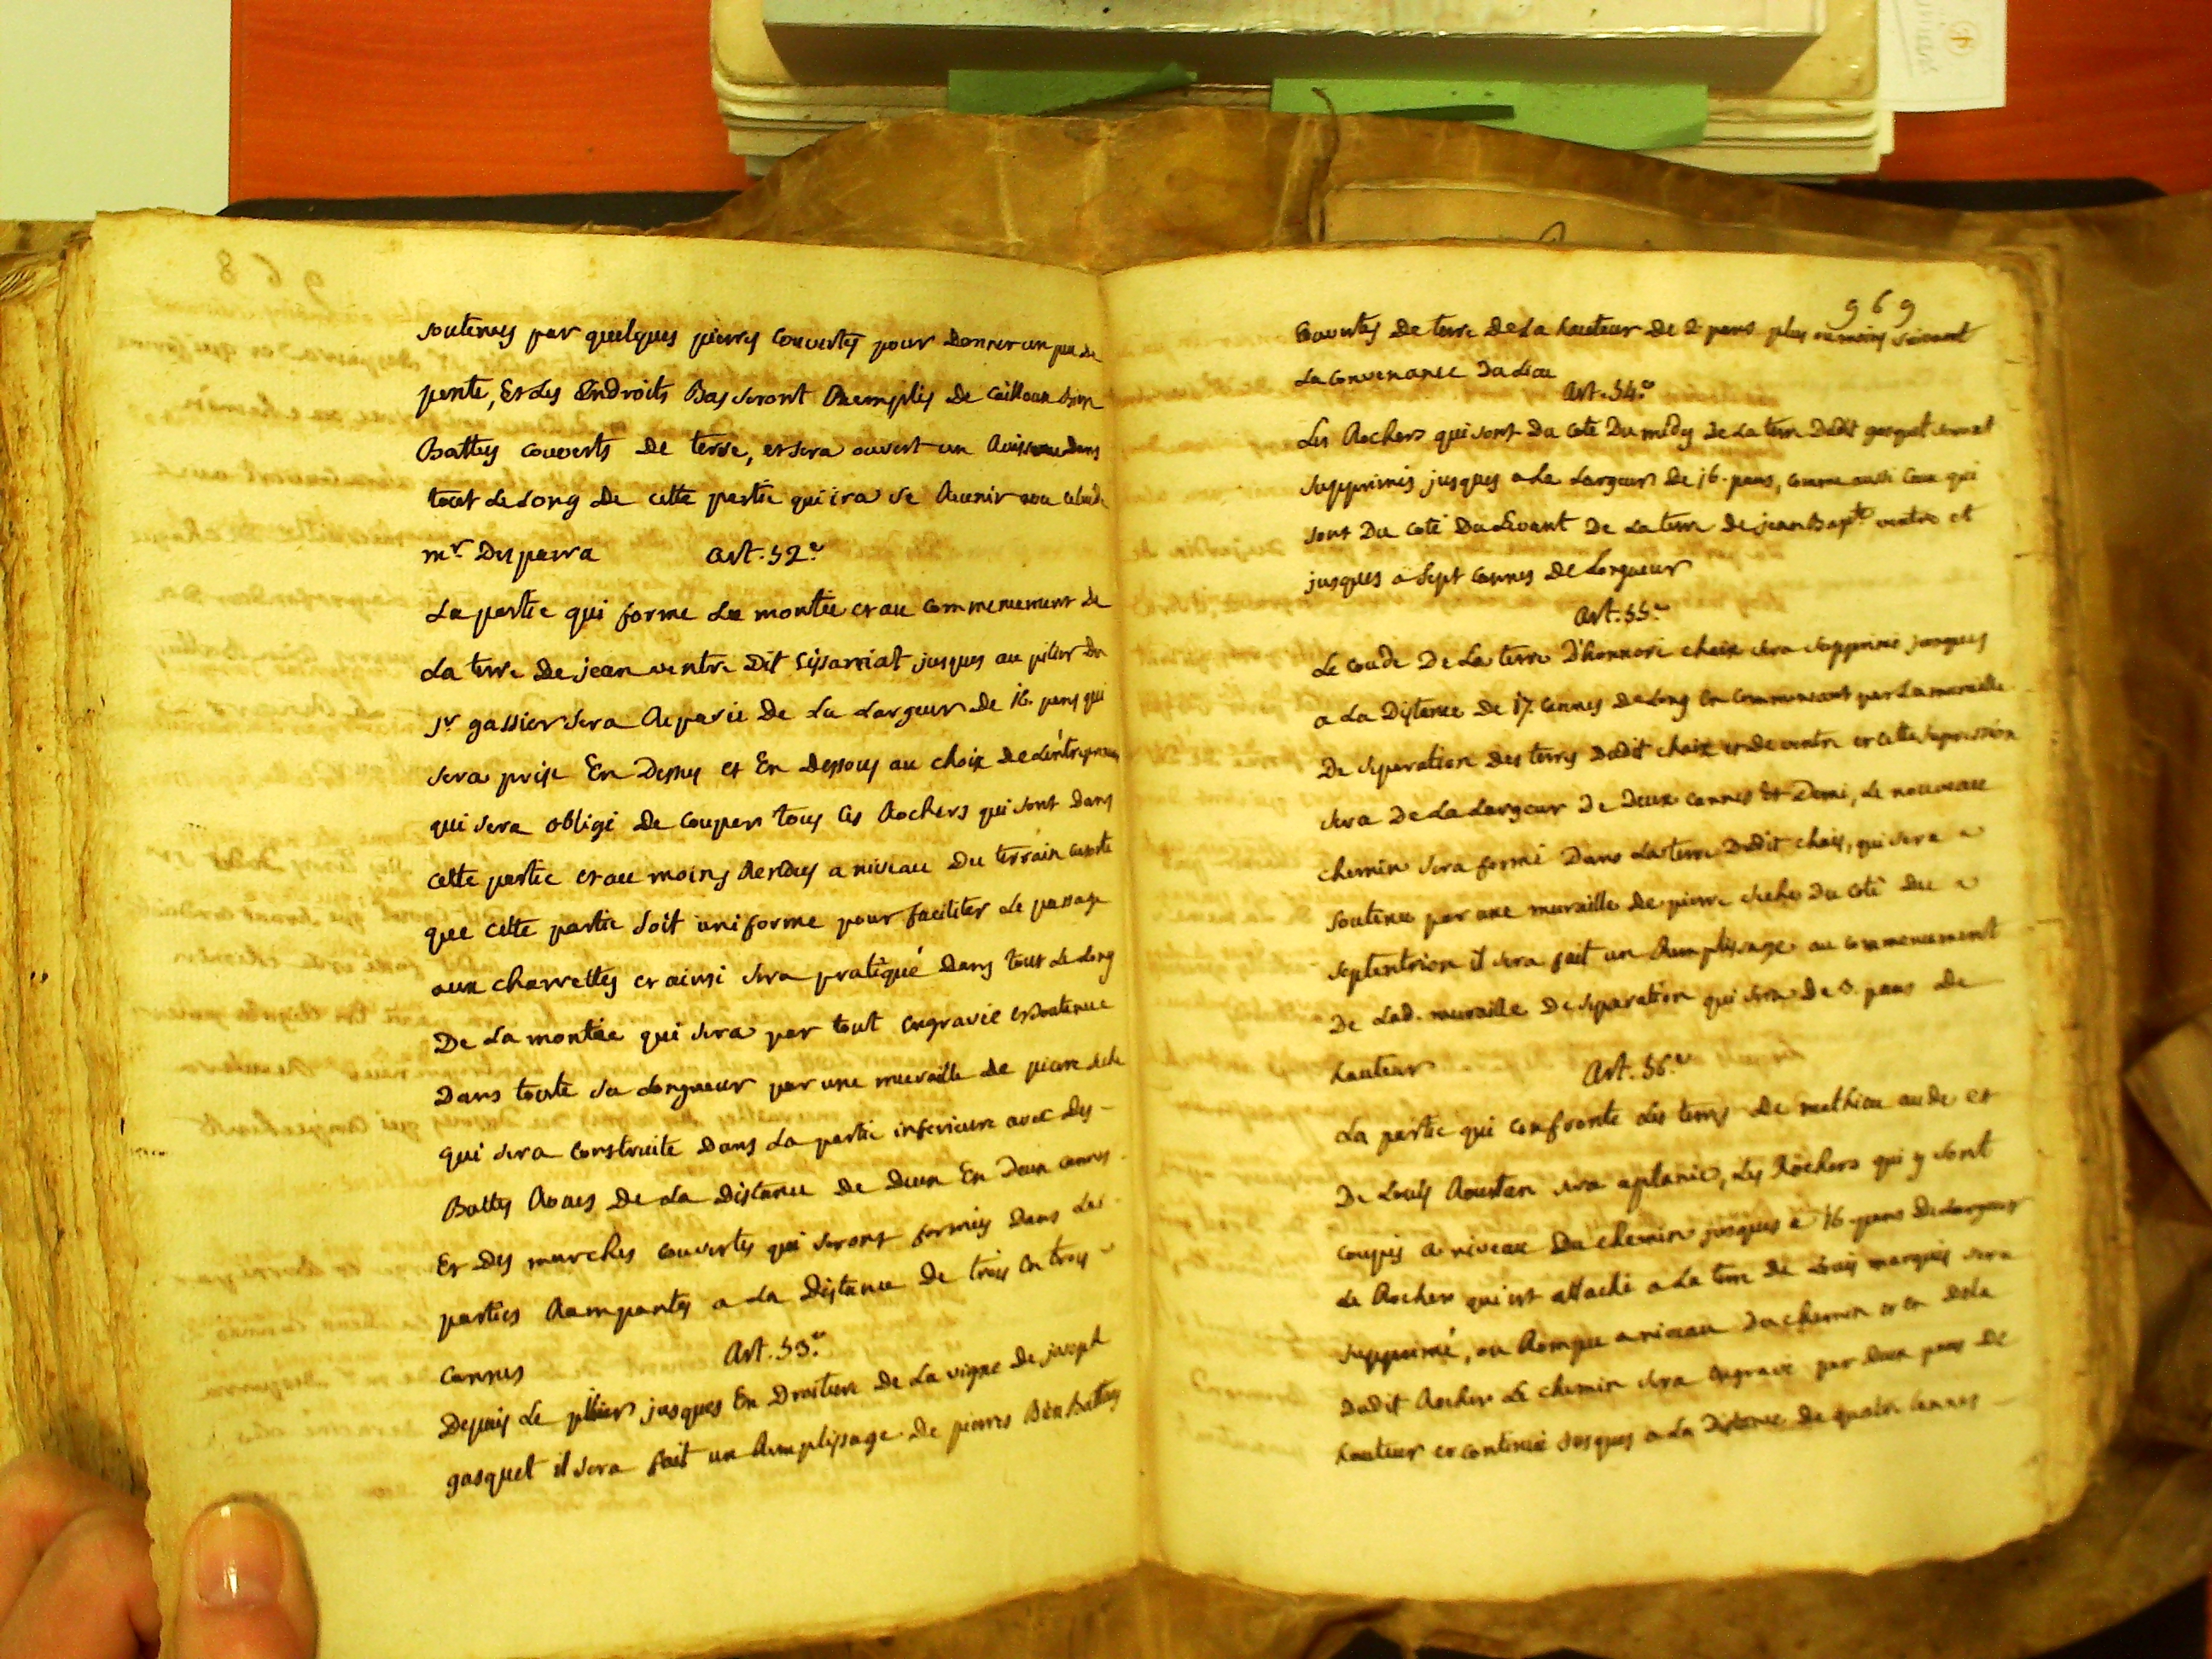 soutenues par quelques pierres couvertes pour Donner un peu de
pente, Et Les Endroits Bas seront Remplis De Cailloux bien
Battus couverts De terre, et sera ouvert un Ruisseau Dans
tout Le Long De cette partie qui ira se Reunir
mr. Desparra Art. 52.e
La partie qui forme La montée et au commencement De
La terre De jean ventre Dit jusques au pilier Du
sr. gassier sera Reparée De La Largeur De 16. pans qui
sera prise En Dessus et En Dessous au choix De L'entrepreneur
qui sera obligé De couper tous Les Rochers qui sont Dans
cette partie et au moins Rendus a niveau Du terrain
que cette partie soit uniforme pour faciliter Le passage
aux charrettes et ainsi sera pratiqué Dans tout Le Long
De La montée qui sera par tout engravée et soutenue
Dans toute sa Longueur par une muraille De pierre seche
qui sera construite Dans La partie inferieure avec Des
Battes Roues De La Distance De Deux En Deux cannes
Et Des marches couvertes qui seront formées Dans Les
parties Rampantes a La Distance De trois En trois
cannes Art. 53.e
Depuis Le pilier jusques En Droiture De La vigne De joseph
gasquet il sera fait un Remplissage De pierres Bien Battues
969
Couvertes De terre De La hauteur De 2 pans plus ou moins suivant
La convenance Du Lieu
Art. 54.e
Les Rochers qui sont Du coté Du midy De La terre Dudit gasquet seront
supprimés jusques a La Largeur De 16. pans, comme aussi Ceux qui
sont Du coté Du Levant De La terre De jean Bapte. ventre et
jusques a sept cannes De Longueur
Art. 55.e
Le coude De La terre D'honnoré chaix sera supprimé jusques
a La Distance De 17. cannes De Long En commencant par La muraille
De separation Des terres Dudit chaix et De ventre et cette supression
sera De La Largeur De Deux cannes Et Demi, Le nouveau
chemin sera formé Dans La terre Dudit chaix, qui sera
soutenu par une muraille De pierre seche Du coté Du
septentrion il sera fait un Remplissage au commencement
De Lad. muraille De separation qui sera De 3. pans De
hauteur Art. 56.e
La partie qui confronte Les terres De mathieu aude et
De Louis Roustan sera aplanie, Les Rochers qui y sont
coupés a niveau Du chemin jusques a 16. pans De Largeur
Le Rocher qui est attaché a La terre De Louis marquis sera
supprimé, ou Rompu a niveau Du chemin et en Dela
Dudit Rocher Le chemin sera Engravé par Deux pans De
hauteur et continué jusques a La Distance De quatre Cannes